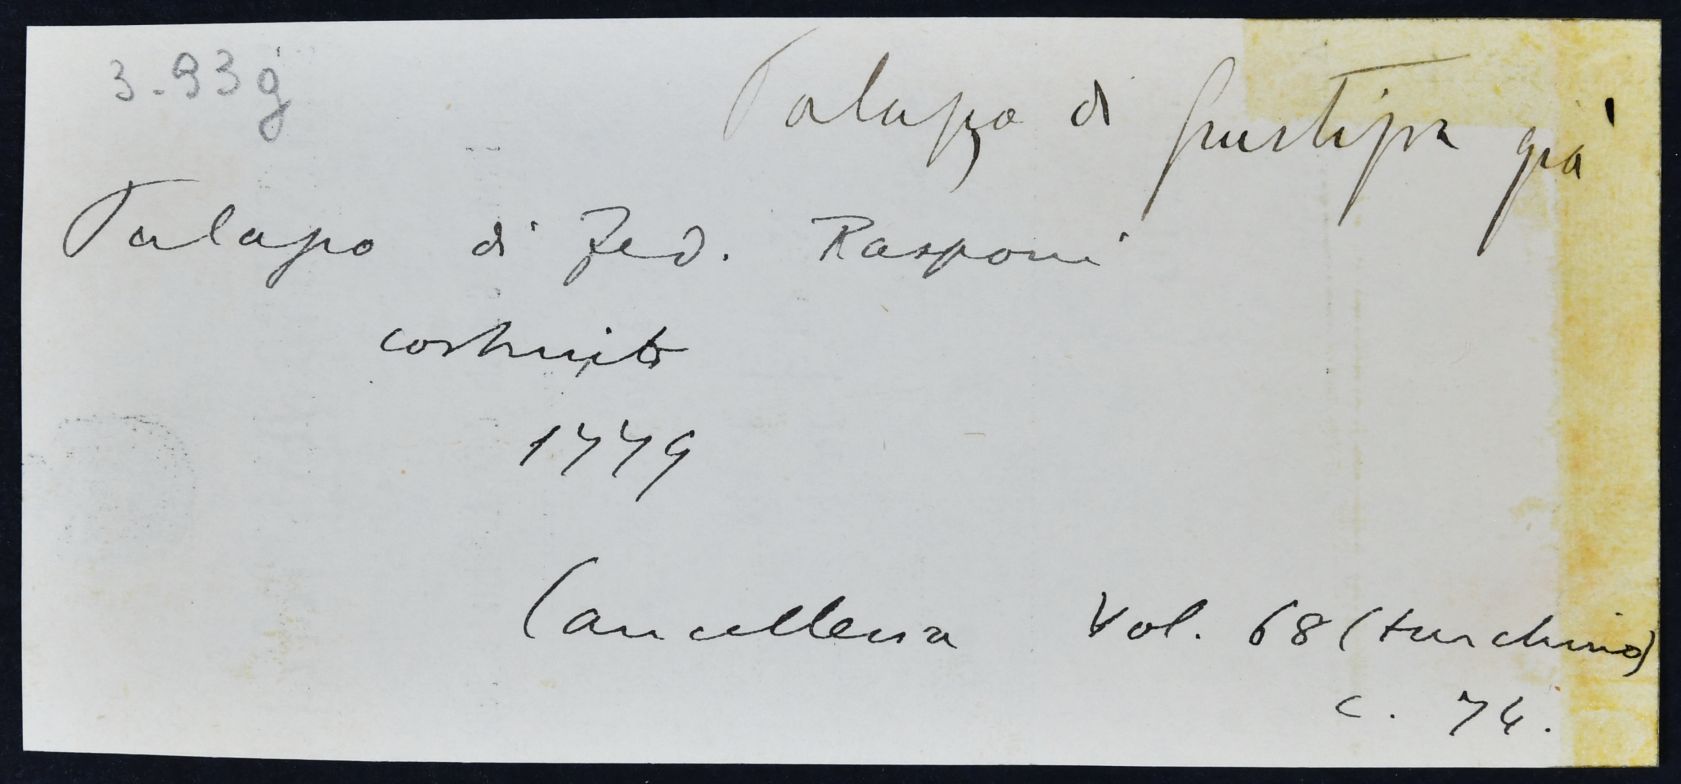 3.93g
Palazzo di Giustizia già
Palazzo di Fed. Rasponi
costruito
1779
Cancelleria Vol. 68 (turchino)
c. 74.